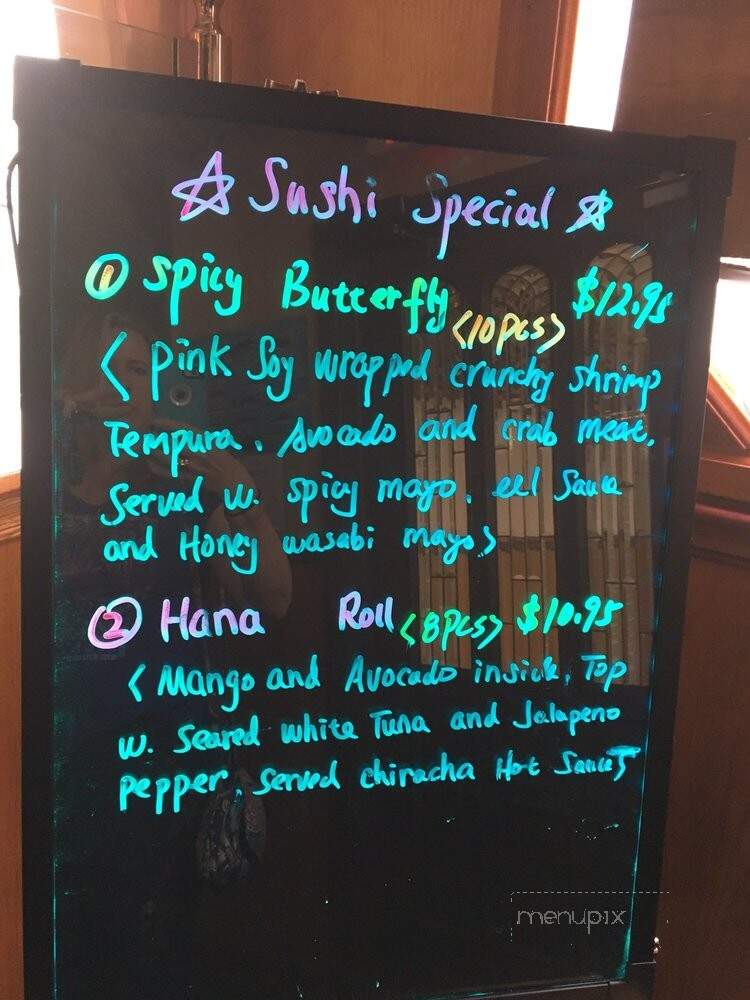 ☆ Sushi Special ☆
① Spicy Butterfly <10pcs> $12.95
< Pink Soy wrapped crunchy shrimp
Tempura. Avocado and crab meat.
Served w. spicy mayo. eel Sauce
and Honey wasabi mayo>
② Hana Roll <8pcs> $10.95
< Mango and Avocado inside, Top
w. Seared white Tuna and Jalapeno
pepper, served chiracha Hot Sauce>
menupix